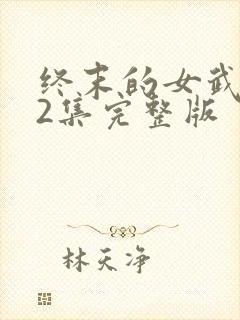 终末的女武
2集完整版
林天净